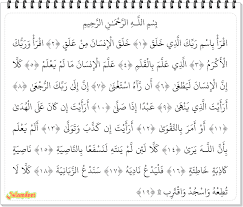 بِسْمِ اللَّـهِ الرَّحْمَـٰنِ الرَّحِيمِ
اقْرَأْ بِاسْمِ رَبِّكَ الَّذِي خَلَقَ ﴿١﴾ خَلَقَ الْإِنسَانَ مِنْ عَلَقٍ ﴿٢﴾ اقْرَأْ وَرَبُّكَ
الْأَكْرَمُ ﴿٣﴾ الَّذِي عَلَّمَ بِالْقَلَمِ ﴿٤﴾ عَلَّمَ الْإِنسَانَ مَا لَمْ يَعْلَمْ ﴿٥﴾ كَلَّا
إِنَّ الْإِنسَانَ لَيَطْغَىٰ ﴿٦﴾ أَن رَّآهُ اسْتَغْنَىٰ ﴿٧﴾ إِنَّ إِلَىٰ رَبِّكَ الرُّجْعَىٰ ﴿٨﴾
أَرَأَيْتَ الَّذِي يَنْهَىٰ ﴿٩﴾ عَبْدًا إِذَا صَلَّىٰ ﴿١٠﴾ أَرَأَيْتَ إِن كَانَ عَلَى الْهُدَىٰ
﴿١١﴾ أَوْ أَمَرَ بِالتَّقْوَىٰ ﴿١٢﴾ أَرَأَيْتَ إِن كَذَّبَ وَتَوَلَّىٰ ﴿١٣﴾ أَلَمْ يَعْلَم
بِأَنَّ اللَّـهَ يَرَىٰ ﴿١٤﴾ كَلَّا لَئِن لَّمْ يَنتَهِ لَنَسْفَعًا بِالنَّاصِيَةِ ﴿١٥﴾ نَاصِيَةٍ
كَاذِبَةٍ خَاطِئَةٍ ﴿١٦﴾ فَلْيَدْعُ نَادِيَهُ ﴿١٧﴾ سَنَدْعُ الزَّبَانِيَةَ ﴿١٨﴾ كَلَّا لَا
تُطِعْهُ وَاسْجُدْ وَاقْتَرِب ۩ ﴿١٩﴾